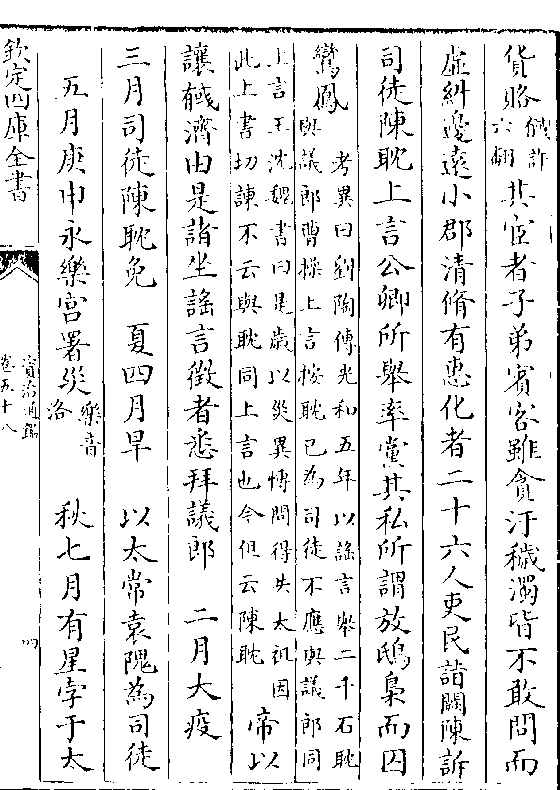 貨賂
餓許
六翻
其宦者子弟賓客雖貪汙穢濁皆不敢問而
虛糾邊遠小郡清脩有惠化者二十六人吏民詣闕陳訴
司徒陳耽上言公卿所舉率黨其私所謂放鴟梟而囚
鸞鳳
考異曰劉陶傳光和五年以謠言舉二千石耽
與議郎曹操上言按耽已為司徒不應與議郎同
上言王沈魏書曰是歲以災異博問得失太祖因
此上書切諫不云與耽同上言也今但云陳耽
帝以
讓馘濟由是諸坐謠言徵者悉拜議郎 二月大疫
三月司徒陳耽免 夏四月旱 以太常袁隗為司徒
五月庚申永樂宮署災
樂音
洛
秋七月有星孛于太
欽定四庫全書
資治通鑑
卷五十八
四